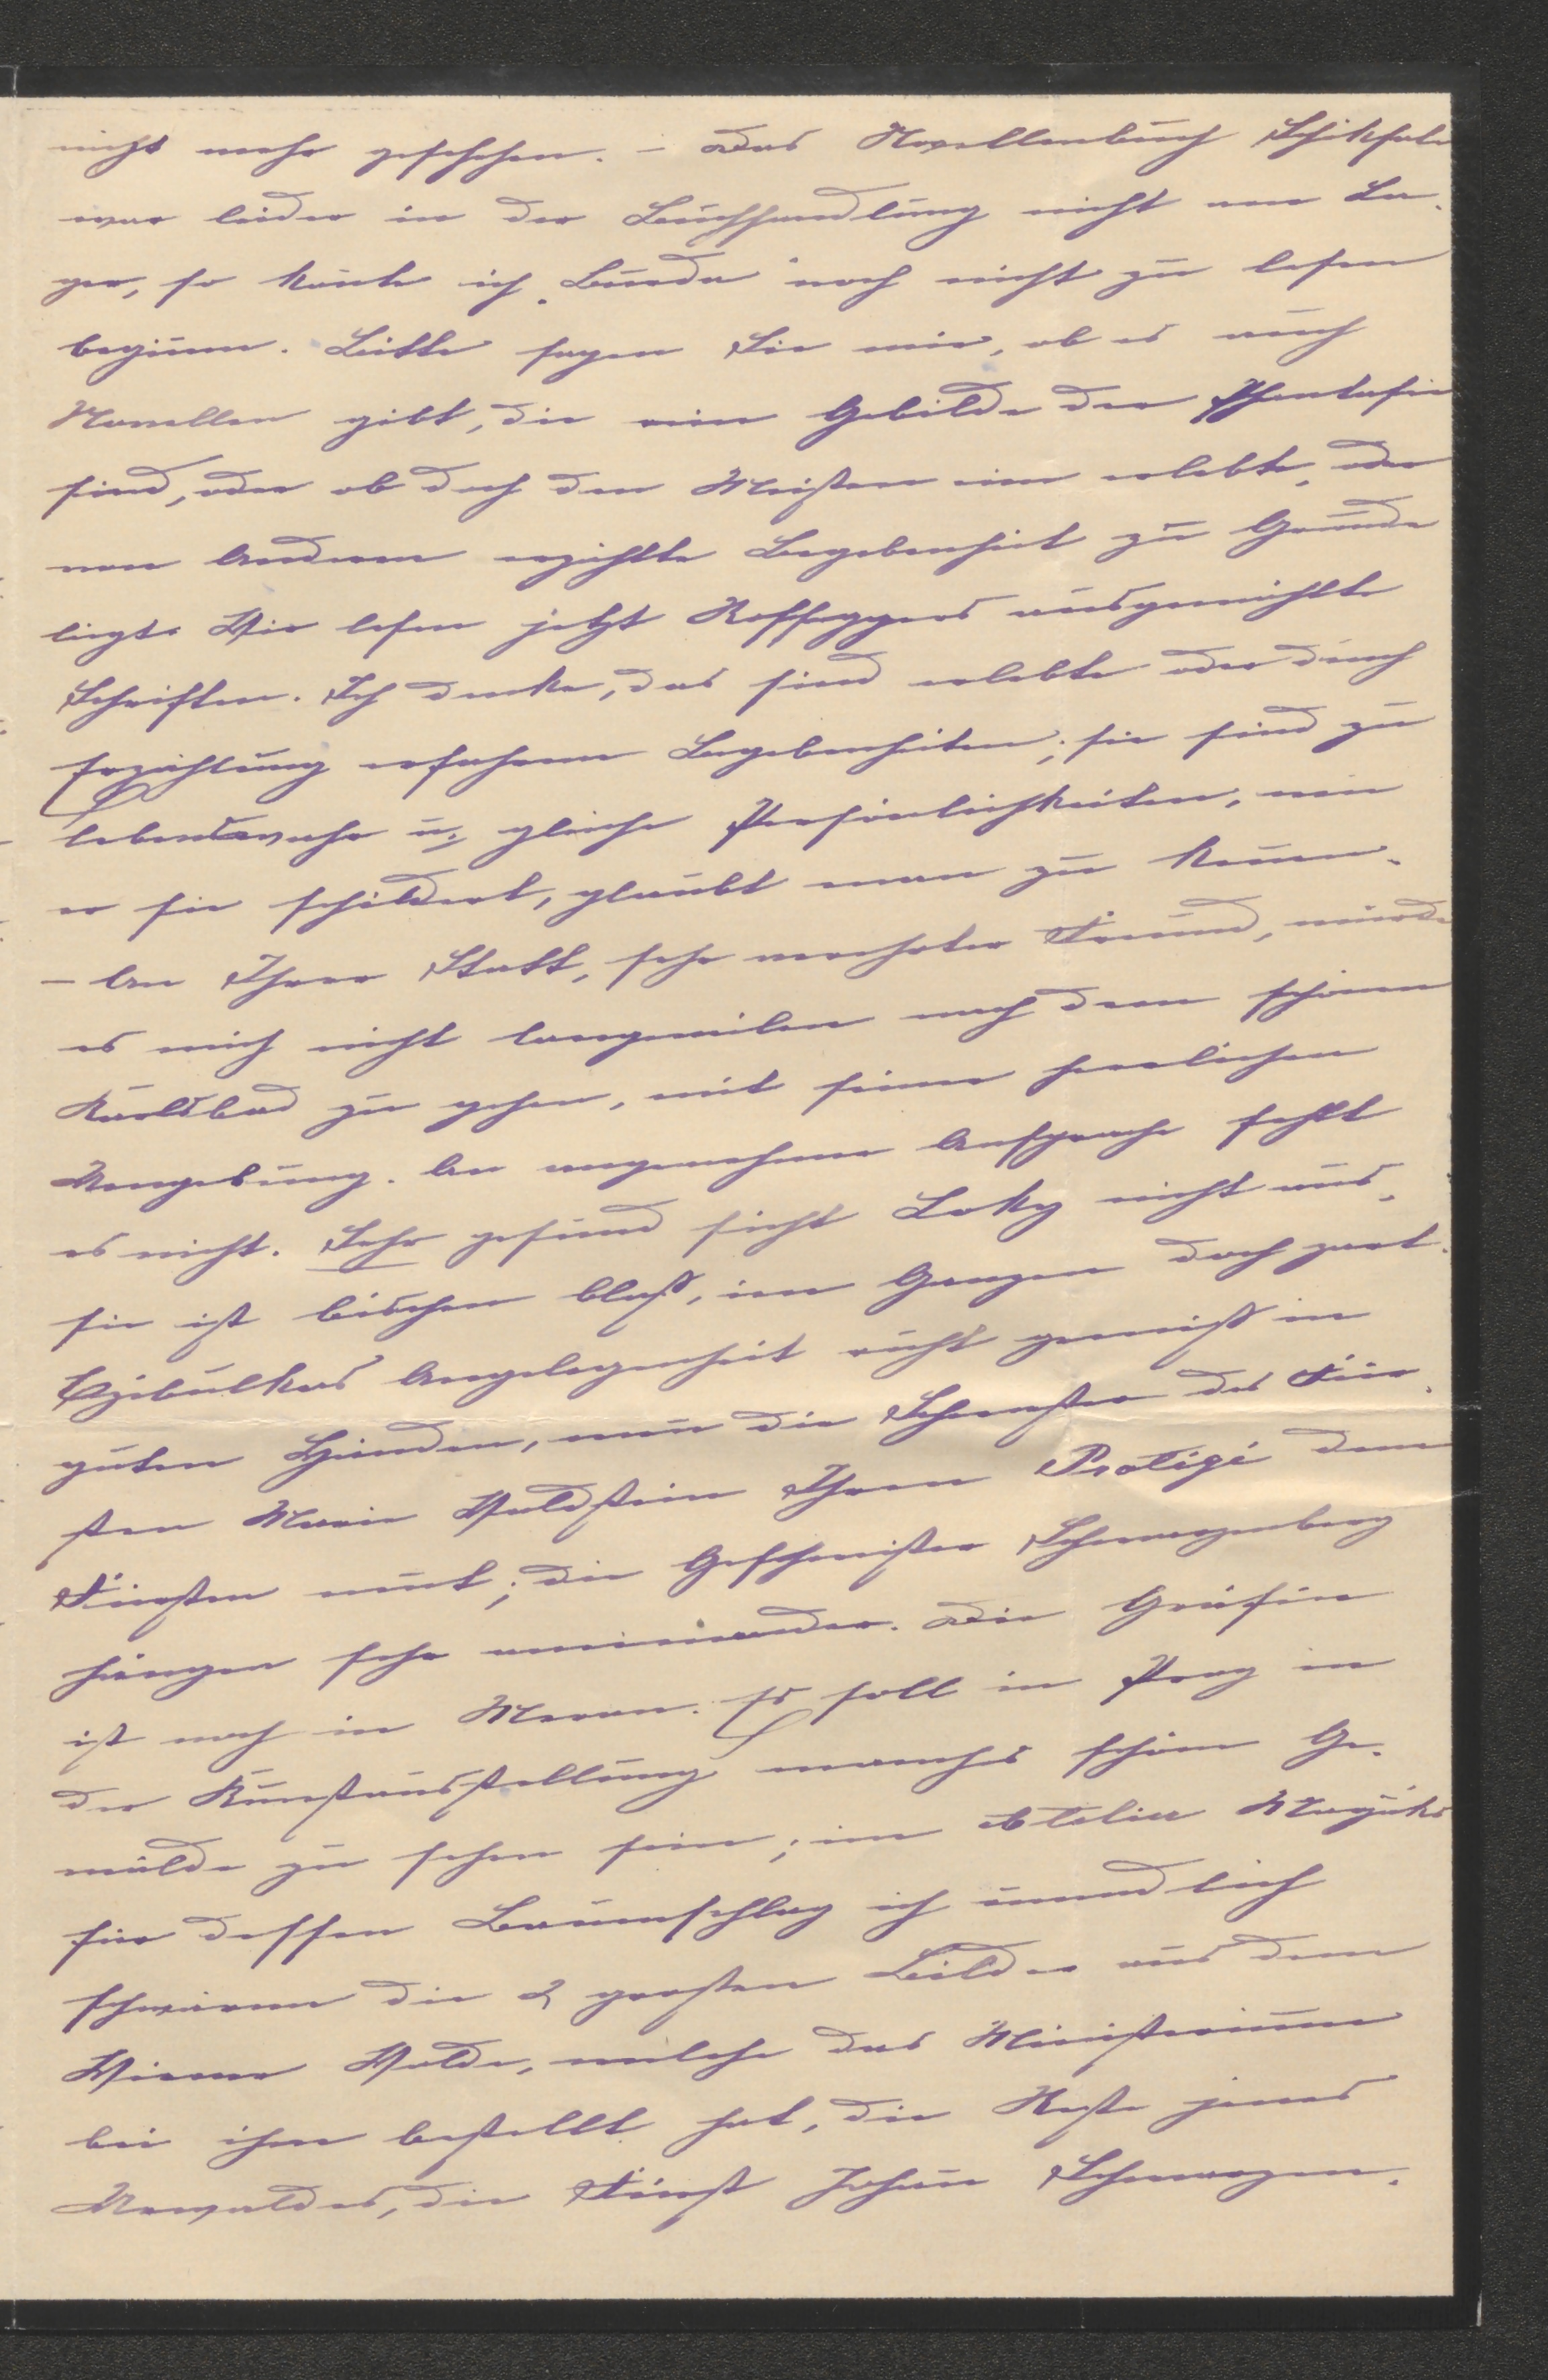 nicht mehr geschehen. – Das Novellenbuch Schiksale
war leider in der Buchhandlung nicht am La-
ger, so konte ich „Burda" noch nicht zu lesen
beginnen. Bitte sagen Sie mir, ob es auch
Novellen gibt, die rein Gebilde der Phantasie
sind, oder ob doch den Meisten eine erlebte, oder
von Anderen erzählte Begebenheit zu Grunde
liegt. Wir lesen jetzt Rosseggers ausgewählte
Schriften. Ich denke, das sind erlebte oder durch
Erzählung erfahrene Begebenheiten; sie sind zu
lebenswahr u. gleiche Persönlichkeiten, wie
er sie schildert, glaubt man zu kennen.
– An Ihrer Statt, sehr verehrter Freund, würde
es mich nicht langweilen nach dem schönen
Karlsbad zu gehen, mit seiner herrlichen
Umgebung. An angenehmer Ansprache fehlt
es nicht. Sehr gesund sieht Loky nicht aus,
sie ist bischen blaß, im Ganzen doch zart.
Czibulkas Angelegenheit ruht gewiß in
guten Händen, wenn die Schwester des Für-
sten Marie Waldstein Ihren Protégé dem
Fürsten nennt; die Geschwister Schwarzenberg
hängen sehr aneinander. Die Gräfin
ist noch in Meran. Es soll in Prag in
der Kunstausstellung manches schöne Ge-
mälde zu sehen sein; im Atelier Mařáks
für dessen Baumschlag ich unendlich
schwärme die 2 großen Bilder aus dem
Wiener Walde, welche das Ministerium
bei ihm bestellt hat, die Reste jenes
Urwaldes, die Fürst Johann Schwarzen-